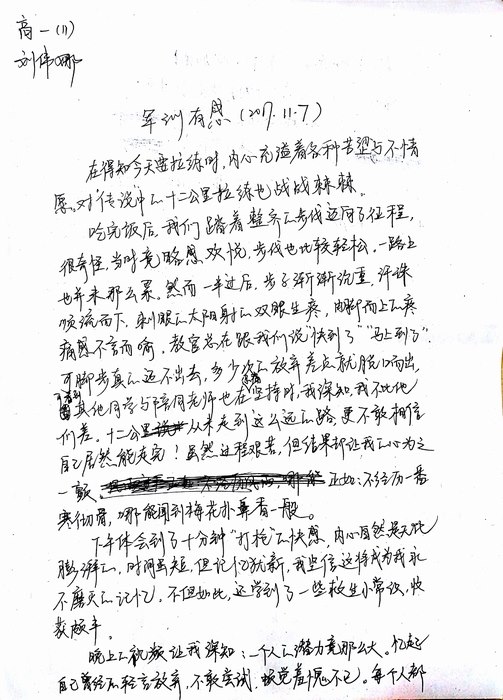 高一(11)
刘伟娜
军训有感(2017.11.7)
在得知今天要拉练时,内心充溢着各种苦涩与不情
愿。对传说中的十二公里拉练也战战棘棘。
吃完饭后,我们踏着整齐的步伐迈向了征程,
很奇怪,当时竟略感欢悦,步伐也比较轻松,一路上
也并未那么累。然而一半过后,步子渐渐沉重,汗珠
顺流而下,刺眼的太阳射的双眼生疼,脚部而上的疼
痛感不言而喻,教官总在跟我们说"快到了""马上到了".
可脚步真的迈不出去,多少次的放弃差点就脱口而出,
可看到其他同学与陪同老师也在坚持时,我深知,我不比他
们差,十二公里从来走到这么远的路,更不敢相信
自己居然能走完!虽然过程艰苦,但结果却让我的心为之
一颤。正如:不经历一番
寒彻骨,哪能闻到梅花扑鼻香一般。
下午体会到了十分钟"打枪"的快感,内心自然是无比
膨湃的,时间虽短,但记忆犹新,我坚信这将成为我永
不磨灭的记忆,不但如此,还学到了一些救生小常识,收
获颇丰。
晚上的视频让我深知:一个人的潜力竟那么大。忆起
自己曾经的轻言放弃,不敢尝试,顿觉羞愧不已,每个人都